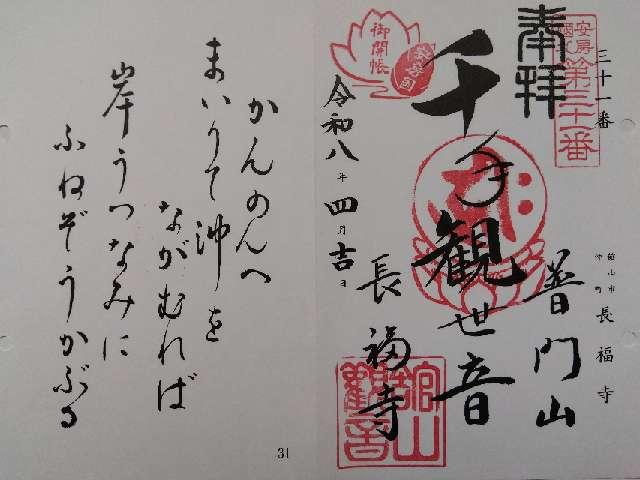 三十一番
奉拝
安房
國札
第三十一番
館山市
仲町
長福寺
普門山
千手観世音
長福寺
令和八年四月吉日
御開帳
館山
觀音
かんのんへ
まいりて沖を
ながむれば
岸うつなみに
ふねぞうかぶる
31